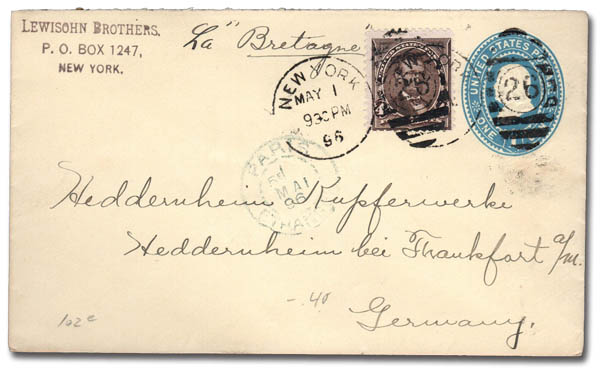 LEWISOHN BROTHERS.
P. O. BOX 1247,
NEW YORK.
La "Bretagne"
NEW YORK
MAY 1
930PM
96
UNITED STATES
ONE
26
PARIS
MAI
96
Heddernheim Kupferwerke
Heddernheim bei Frankfort a/m.
Germany.
102c
-.40